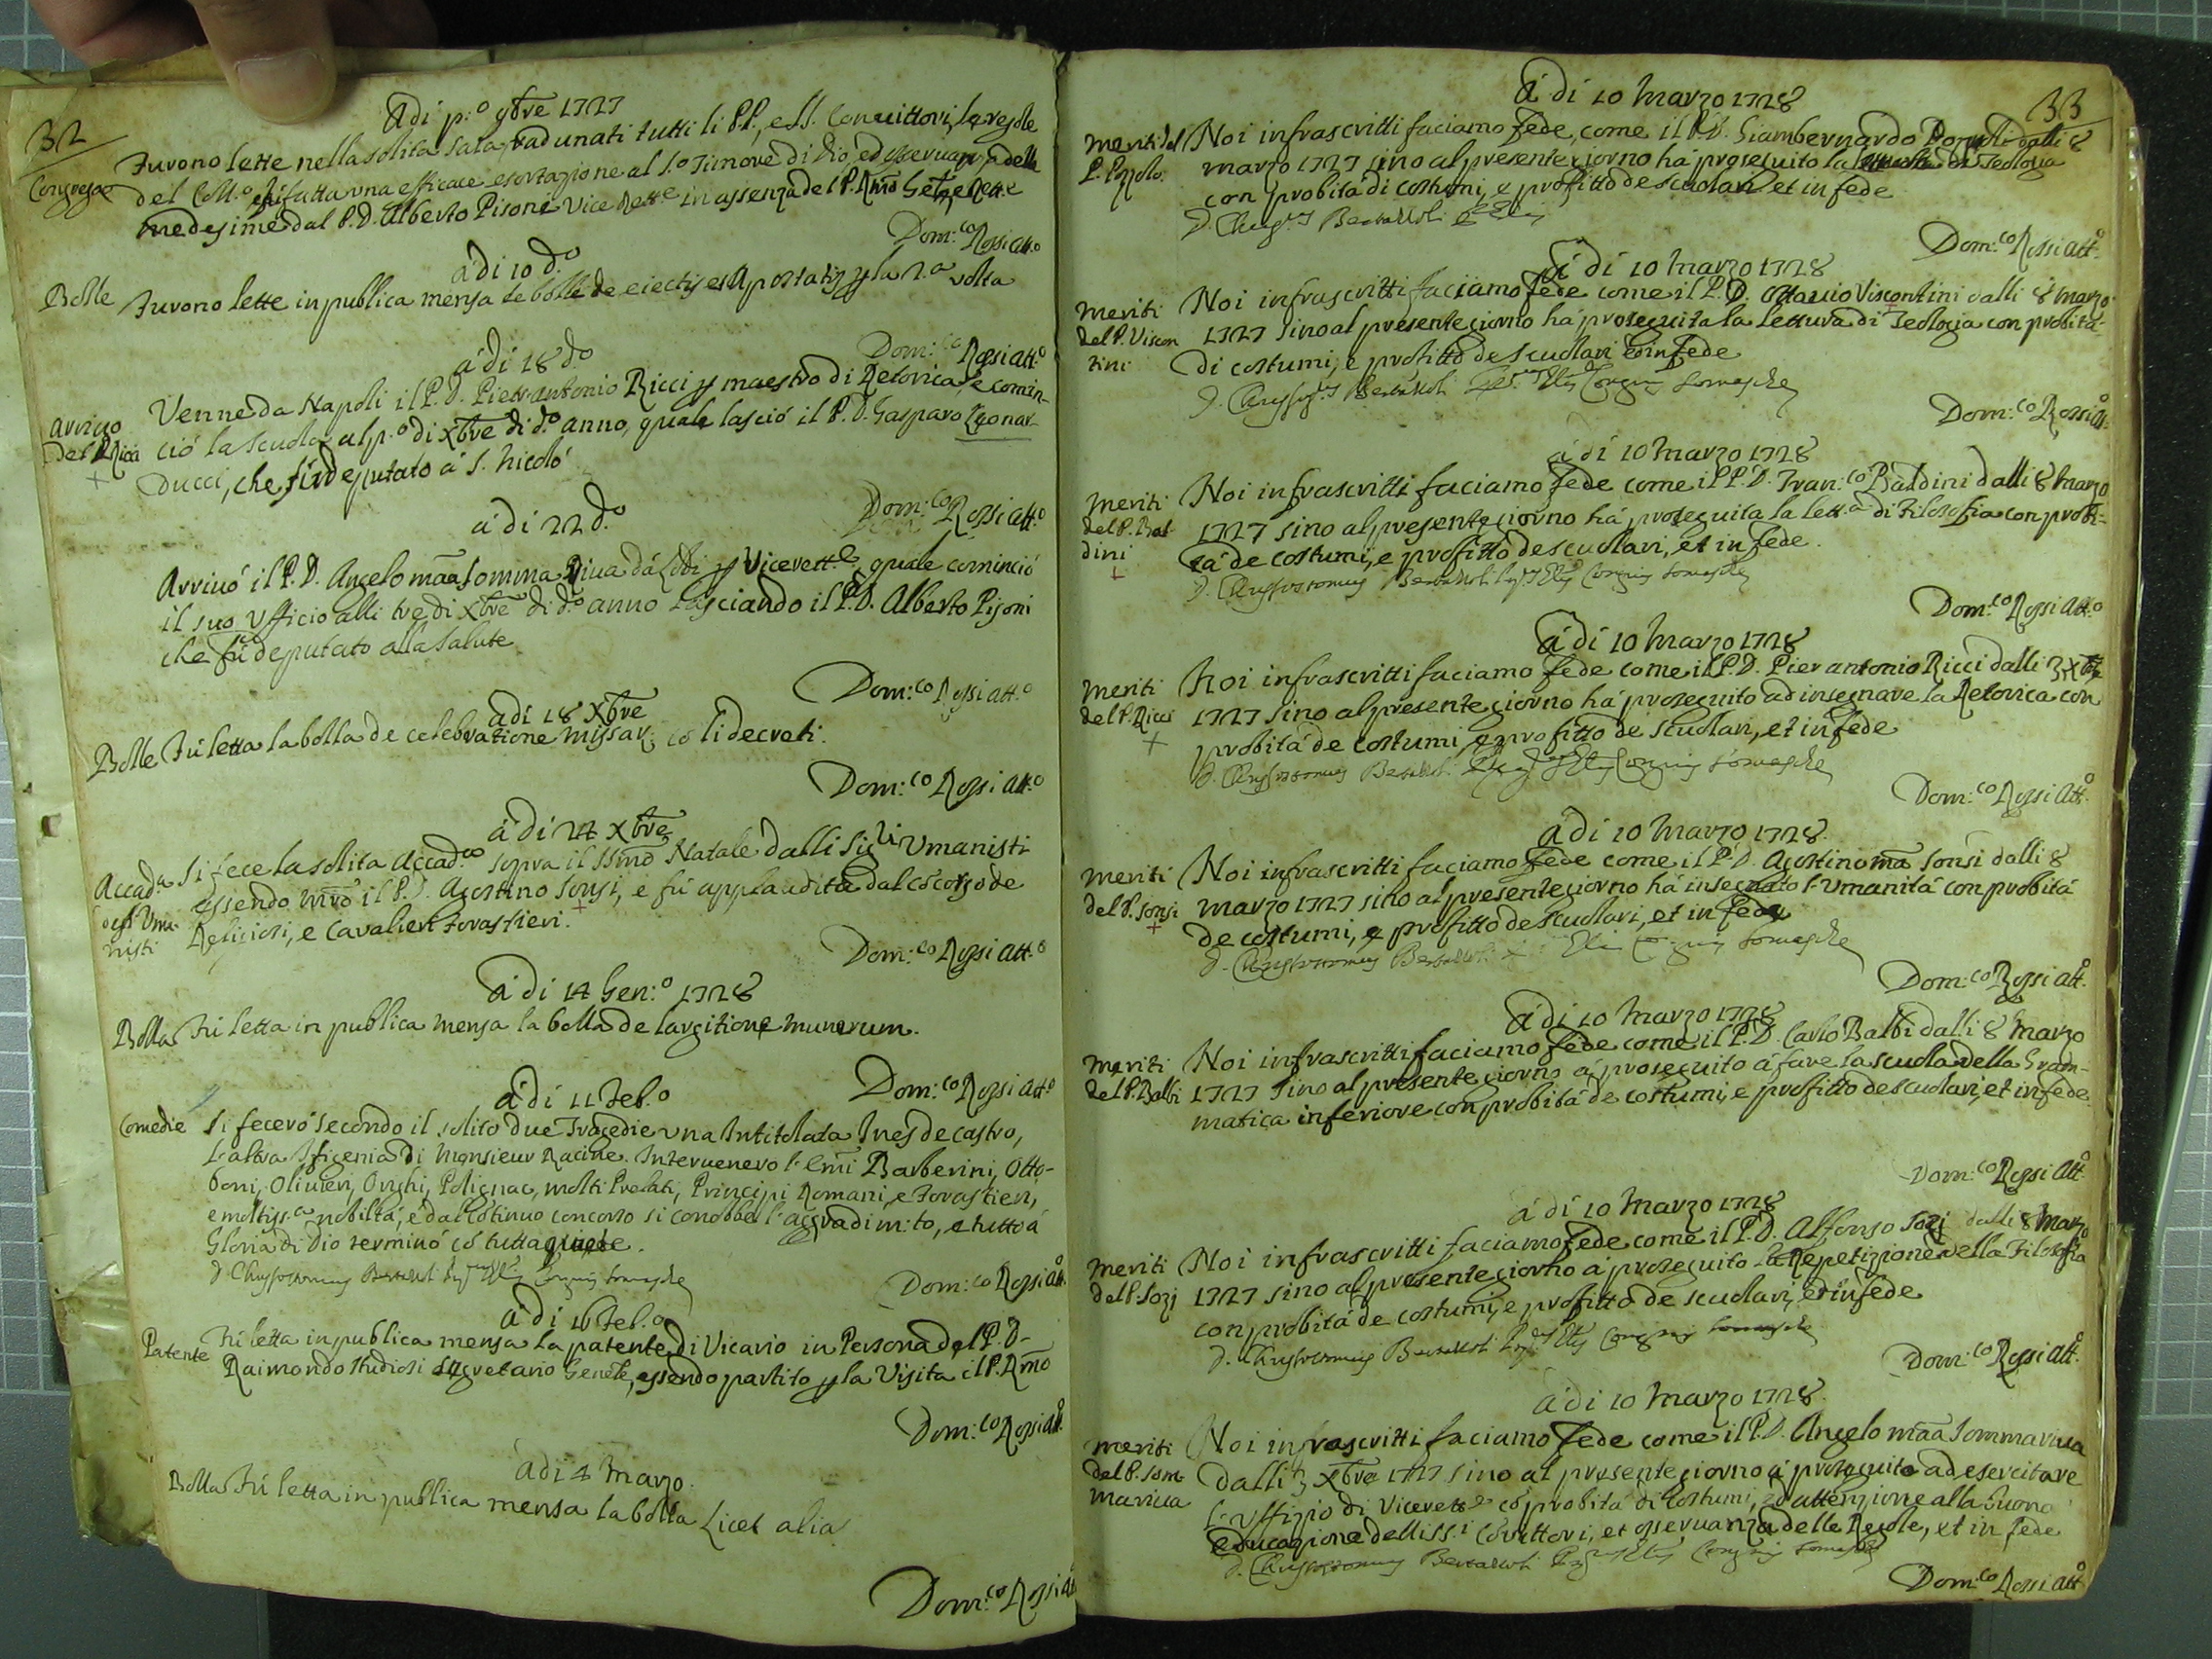 32
Adi p.o 9bre 1727
Congregaz.
Furono lette nella solita sala, radunati tutti li PP., e SS. Convittori, le regole
del Coll.o e fu fatta una efficace esortazione al S.o Timore di Dio, ed osservanza delle
medesime dal P. D. Alberto Pisone Vice Rett.e in assenza del P. Rmo
Dom:co Rossi att.o
à di 10 d.o
Bolle Furono lette in publica mensa le bolle de eiectis et Apostatis p la 2.a volta
Dom:co Rossi att.o
à di 18 d.o
Arrivo del P. Ricci
Venne da Napoli il P. D. Pietr'antonio Ricci p maestro di Retorica, e comin-
ciò la scuola al p.o di Xbre di d.o anno, quale lasciò il P. D. Gasparo Leonar-
ducci, che fù deputato à S. Nicolò
Dom:co Rossi att.o
à di 22 d.o
Arrivò il P. D. Angelo maa Somma Riva da Lodi p Vicerett.e, quale cominciò
il suo Ufficio alli tre di Xbre di d.o anno lasciando il P. D. Alberto Pisoni
che fù deputato alla Salute
Dom:co Rossi att.o
à di 18 Xbre
Bolle Fù letta la bolla de celebratione missar. cò li decreti.
Dom:co Rossi att.o
à di 24 Xbre
Accad.a degl'Umanisti
Si fece la solita Accad.a sopra il SSmo Natale dalli Sig.li Umanisti
essendo mro il P. D. Agostino Sonsi, e fù applaudita dal cócorso de
Religiosi, e Cavalieri Forastieri.
Dom:co Rossi att.o
à di 14 Gen:o 1728
Bolla Fù letta in publica mensa la bolla de largitione munerum.
Dom:co Rossi att.o
à di 11 Feb.o
Comedie Si fecero secondo il solito due Tragedie una Intitolata Ines de Castro,
l'altra Ifigenia di Monsieur Racine. Intervenero l'Emi Barberini, Otto-
boni, Olivieri, Orighi, Polignac, molti Prelati, Principi Romani, e Forastieri,
e moltiss.a nobiltà, e dal cótinuo concorso si conobbe l'aggradim:to, e tutto à
Gloria di Dio terminò có tutta quiete.
D. Chrysostomus Bertazzoli Congnis Somaschae
Dom:co Rossi att.o
à di 16 Feb.o
Patente Fù letta in publica mensa la patente di Vicario in Persona del P. D.
Raimondo Studiosi Segretario Genēle, essendo partito p la Visita il P. Rmo
Dom:co Rossi att.o
à di 4 Marzo.
Bolla Fù letta in publica mensa la bolla Licet alia
Dom:co Rossi att.o
33
à di 10 Marzo 1728
meriti del P. Pozolo.
Noi infrascritti faciamo fede, come il P. D. Giambernardo dalli 8
marzo 1727 sino al presente giorno hà proseguito la di Teologia
con probità di costumi, e profitto de scuolari et in fede
D. Bertazzoli
Dom:co Rossi att.o
à di 10 Marzo 1728
meriti del P. Viscontini
Noi infrascritti faciamo fede come il P. D. Ottavio Viscontini dalli 8 marzo
1727 sino al presente giorno hà proseguita la lettura di Teologia con probità
di costumi, e profitto de scuolari et in fede
D. Bertazzoli Congnis Somaschae
Dom:co Rossi att.o
à di 10 Marzo 1728
meriti del P. Baldini
Noi infrascritti faciamo fede come il P. D. Fran:co Baldini dalli 8 marzo
1727 sino al presente giorno hà proseguita la lett.a di Filosofia con probi-
tà de costumi, e profitto de scuolari, et in fede.
D. Chrysostomus Bertazzoli Congnis Somaschae
Dom:co Rossi att.o
à di 10 Marzo 1728
meriti del P. Ricci
Noi infrascritti faciamo fede come il P. D. Pier antonio Ricci dalli 3 Xbre
1727 sino al presente giorno hà proseguito ad insegnare la Retorica con
probità de costumi, e profitto de scuolari, et in fede
D. Chrysostomus Bertazzoli Congnis Somaschae
Dom:co Rossi att.o
à di 10 Marzo 1728.
meriti del P. Sonsi
Noi infrascritti faciamo fede come il P. D. Agostino ma Sonsi dalli 8
marzo 1727 sino al presente giorno hà insegnato l'Umanità con probità
de costumi, e profitto de scuolari, et in fede
D. Chrysostomus Bertazzoli Congnis Somaschae
Dom:co Rossi att.o
à di 10 Marzo 1728
meriti del P. Balbi
Noi infrascritti faciamo fede come il P. D. Carlo Balbi dalli 8 marzo
1727 sino al presente giorno à proseguito à fare la scuola della Gram-
matica inferiore con probità de costumi, e profitto de scuolari, et in fede
Dom:co Rossi att.o
à di 10 Marzo 1728
meriti del P. Sozj
Noi infrascritti faciamo fede come il P. D. Alfonso Sozj dalli 8 marzo
1727 sino al presente giorno à proseguito la Repetizione della Filosofia
con probità de costumi, e profitto de scuolari, et in fede
D. Chrysostomus Bertazzoli Congnis Somaschae
Dom:co Rossi att.o
à di 10 Marzo 1728.
meriti del P. Sommariva
Noi infrascritti faciamo fede come il P. D. Angelo maa Sommariva
dalli 3 Xbre 1727 sino al presente giorno à proseguito ad esercitare
l'Uffizio di Vicerett.e có probità di Costumi, ed attenzione alla buona
educazione delli SS.i Cóvittori, et osservanza delle Regole, et in fede
D. Chrysostomus Bertazzoli Congnis Somaschae
Dom:co Rossi att.o